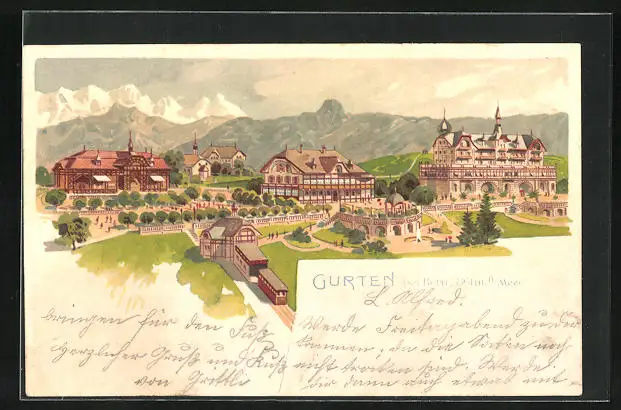 GURTEN bei Bern, 861 m ü. Meer
L. Alfred.
Werde Freitagabend zu dir
kommen, da die Sachen noch
nicht trocken sind. Werde
dir dann auch etwas mit
bringen für den Fuß
Herzlicher Gruß und Kuß
von Grittli